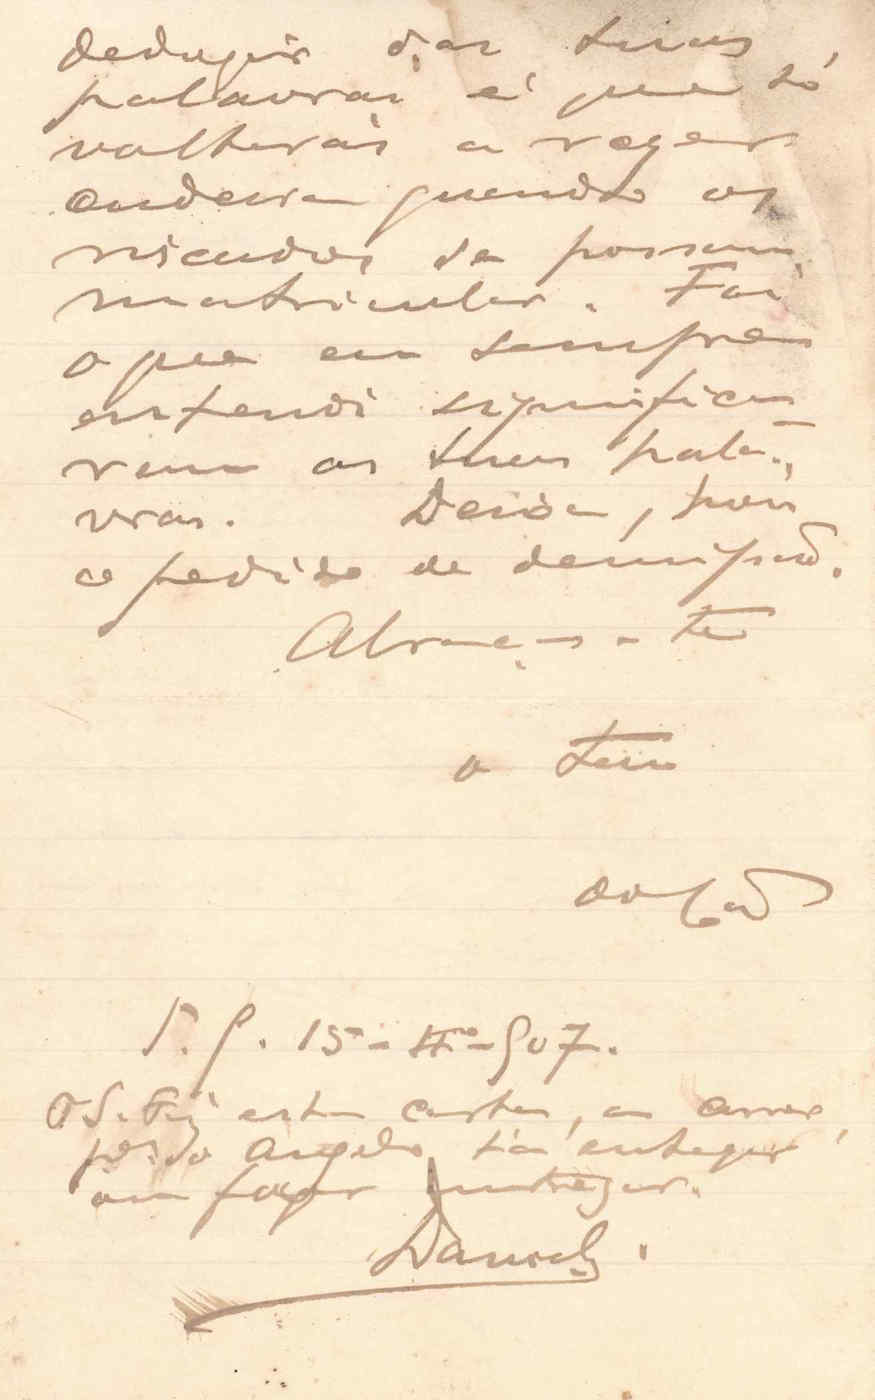 deduzir das tuas
palavras é que só
voltarás a reger
cadeira quando os
riscados se possam
matricular. Foi
o que eu sempre
entendi significa
rem as tuas pala-
vras. Deixa, pois
o pedido de demissão.
Abraça-te
o teu
do Cor.
S. P. 15-4º-907.
P.S. Fiz esta carta, e
pedi ao Angelo t'a entregar
ou fazer entregar.
Daniel.